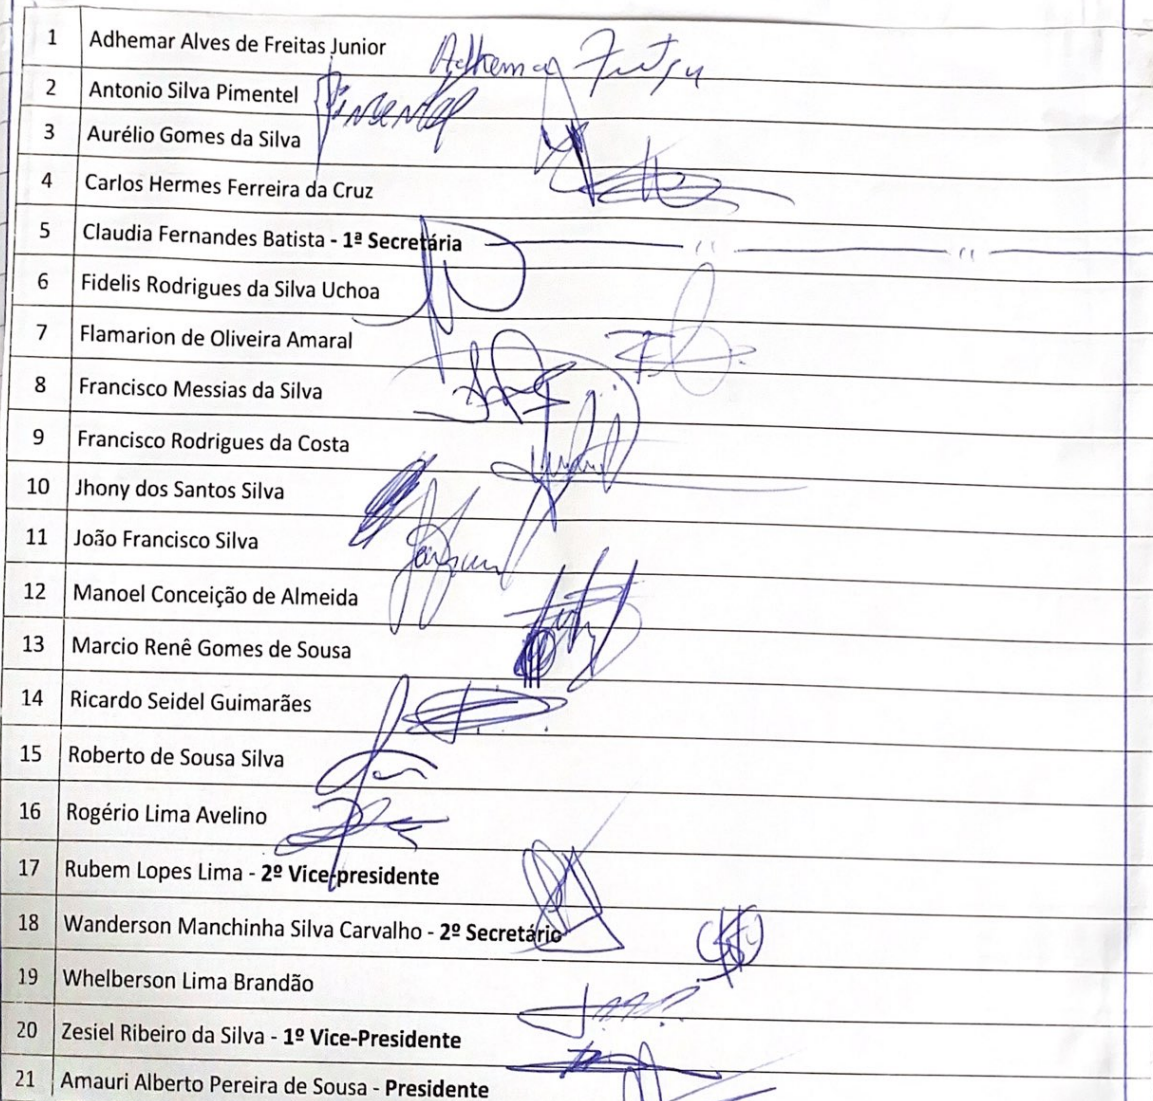 1 Adhemar Alves de Freitas Junior Adhemar Freitas
2 Antonio Silva Pimentel Pimentel
3 Aurélio Gomes da Silva
4 Carlos Hermes Ferreira da Cruz
5 Claudia Fernandes Batista - 1ª Secretária
6 Fidelis Rodrigues da Silva Uchoa
7 Flamarion de Oliveira Amaral
8 Francisco Messias da Silva
9 Francisco Rodrigues da Costa
10 Jhony dos Santos Silva
11 João Francisco Silva
12 Manoel Conceição de Almeida
13 Marcio Renê Gomes de Sousa
14 Ricardo Seidel Guimarães
15 Roberto de Sousa Silva
16 Rogério Lima Avelino
17 Rubem Lopes Lima - 2º Vice-presidente
18 Wanderson Manchinha Silva Carvalho - 2º Secretário
19 Whelberson Lima Brandão
20 Zesiel Ribeiro da Silva - 1º Vice-Presidente
21 Amauri Alberto Pereira de Sousa - Presidente